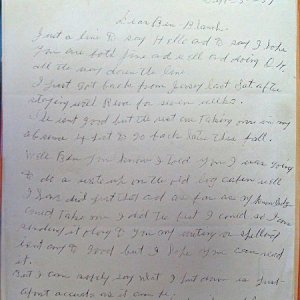 Sept-5-59
Dear Ben - Blanch.
Just a line to say Hello and to say I hope
you are both fine and well and doing O.K.
all the way down the line
I just got back from Jersey last Sat after
staying with Rion for seven weeks.
He isn't good but the rest are taking me on my
absence & got to go back later this fall.
Well Ben you know I told you I was going
to do a write up on the old log cabin well
I have did just that and as far as my knowledge
could take me I did the best I could so I am
sending it along to you my writing or spelling
isn't any to good but I hope you can read
it.
But I can safely say what I put down is just
about accurate as it can be